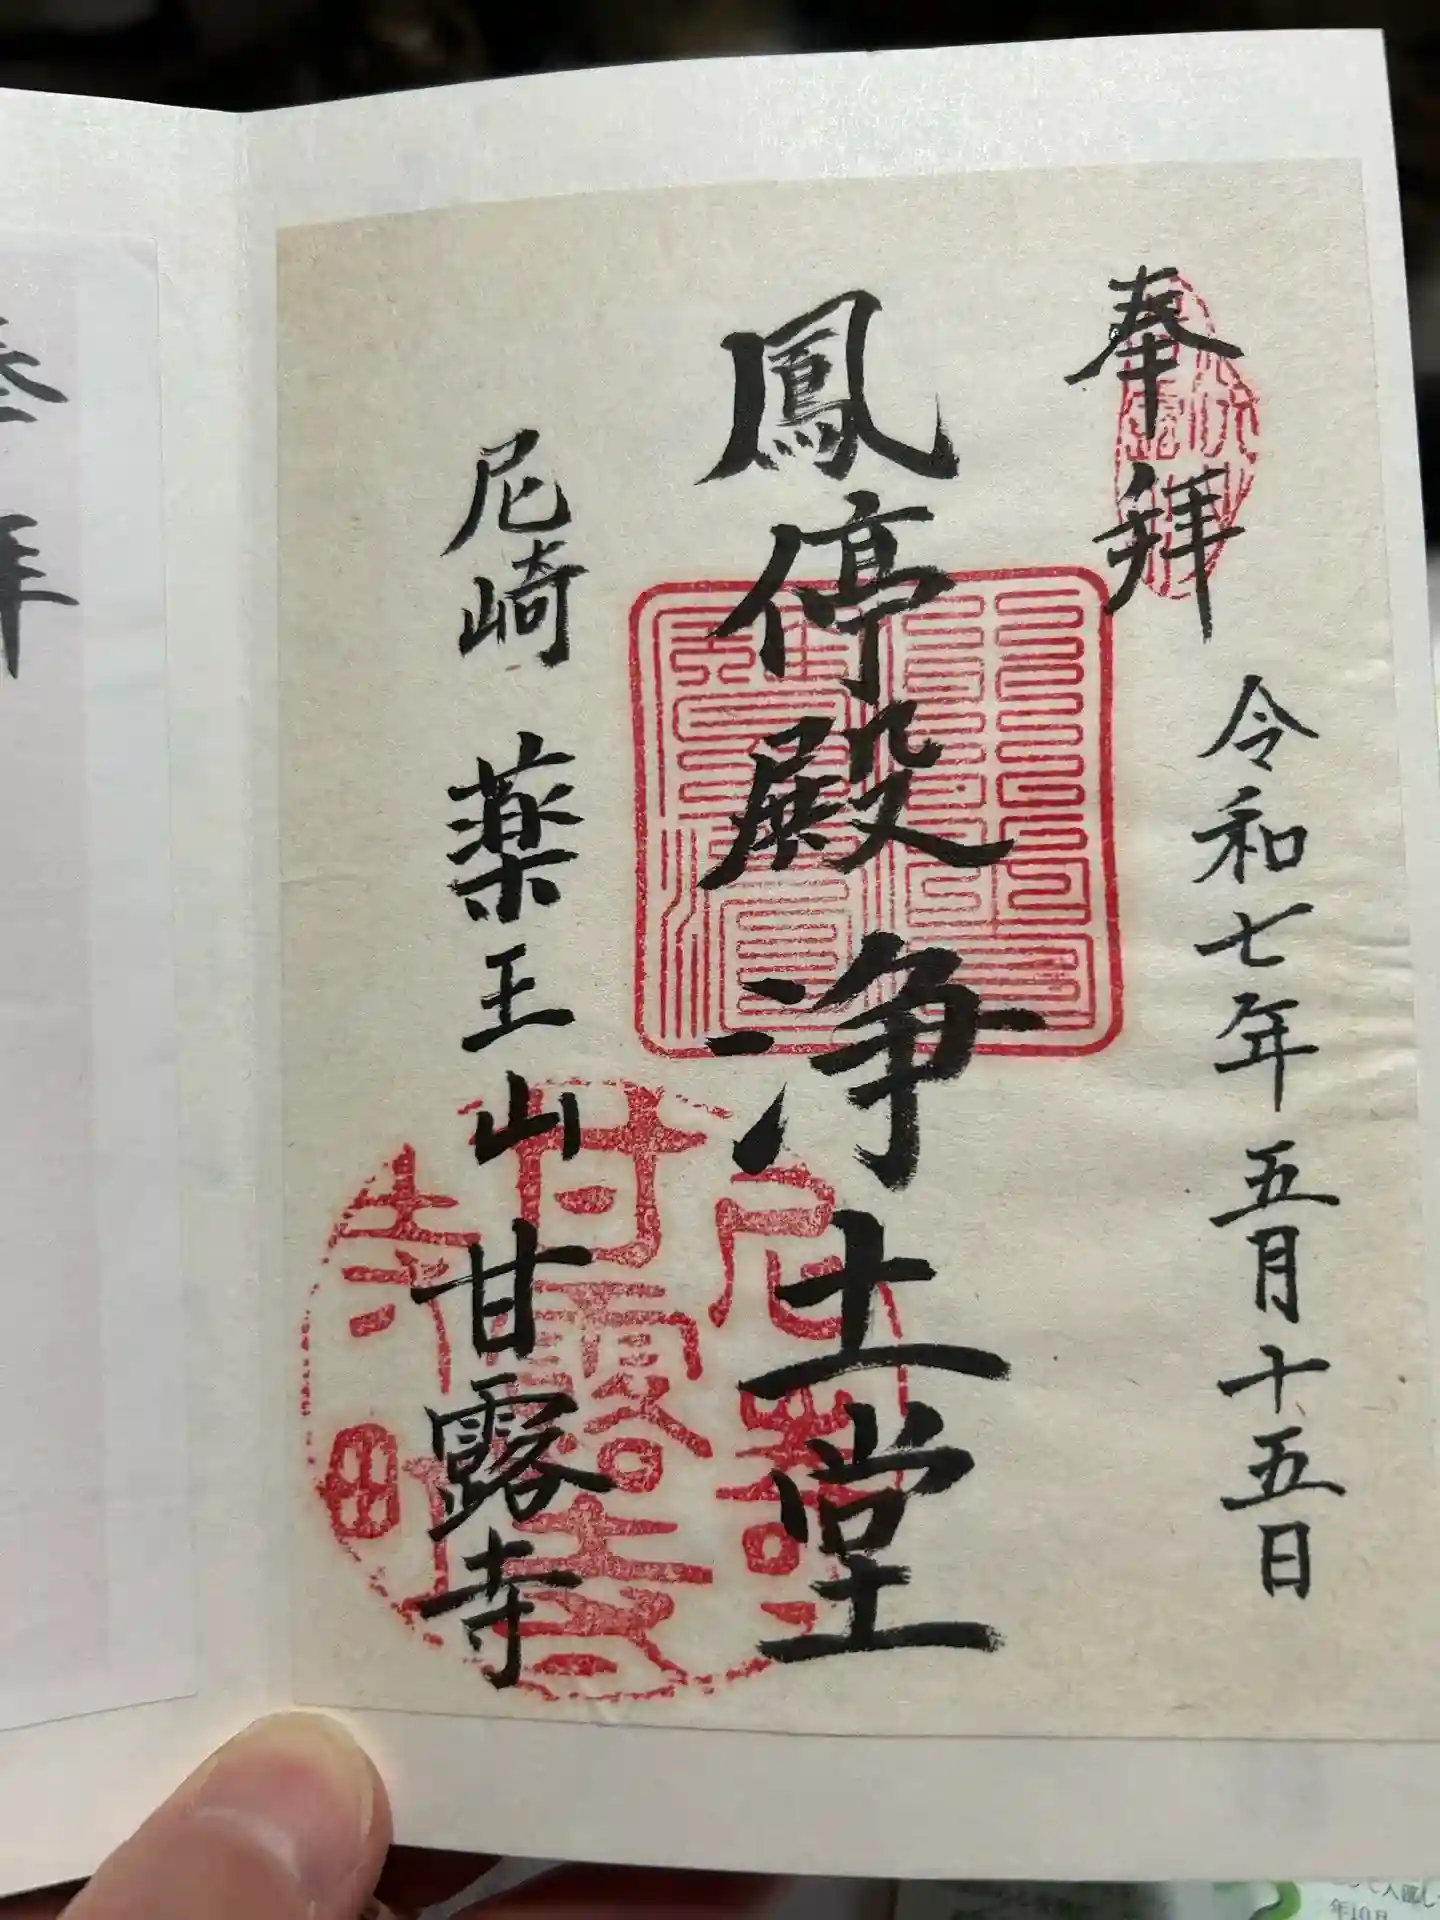 奉拜
令和七年五月十五日
鳳停殿浄土堂
尼崎 薬王山甘露寺
甘露
拝
年10月